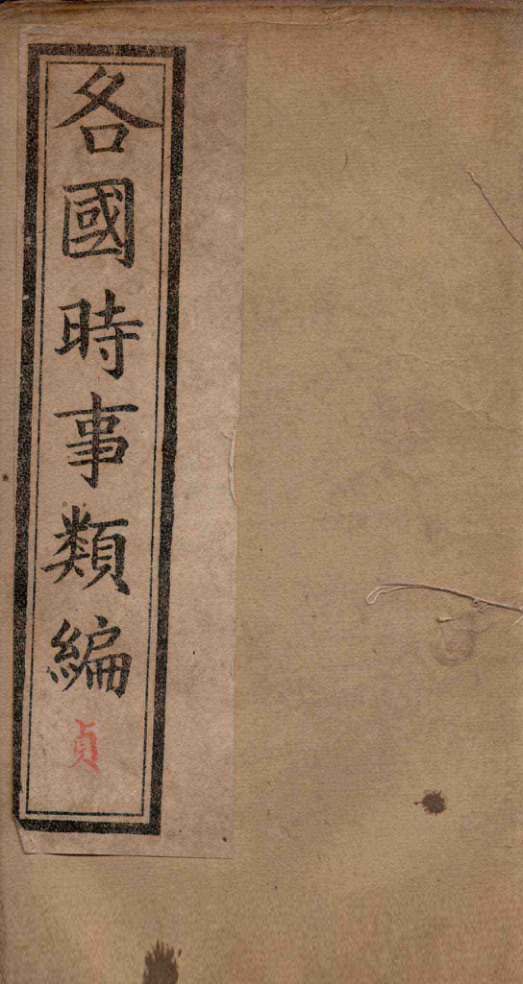 各國時事類編
貞